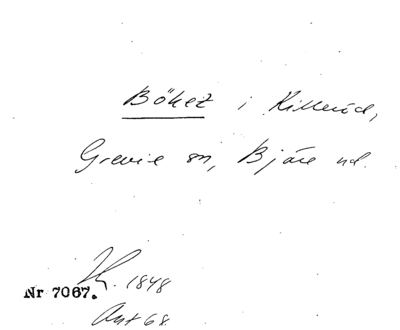 Böket i Killeröd,
Grevie sn, Bjäre hd.
1848
Nr 7067.
Ant 68